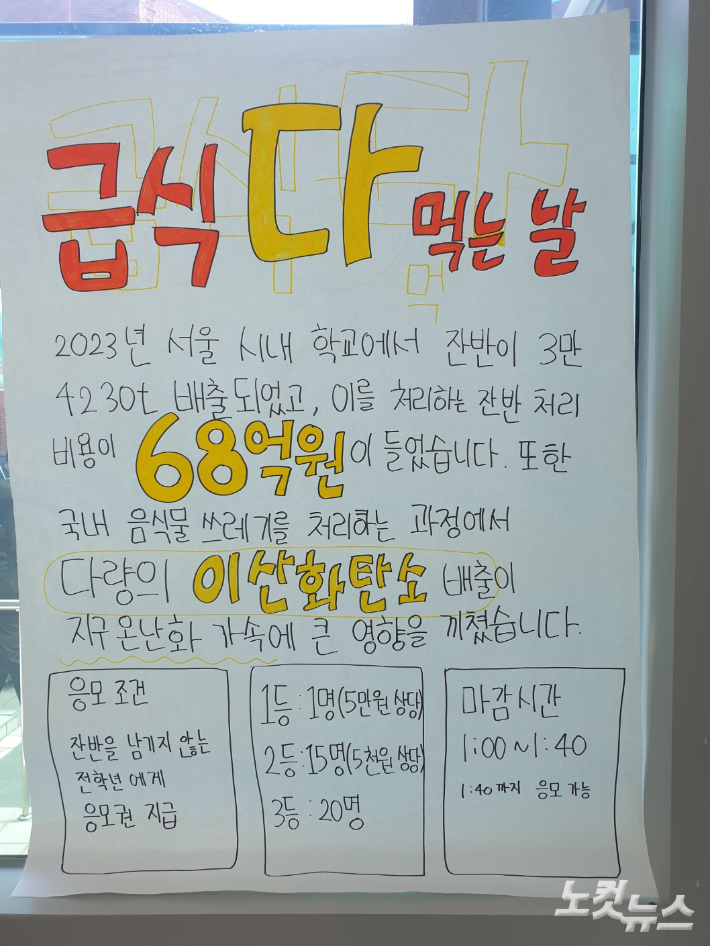 급식 다 먹는 날
2023년 서울 시내 학교에서 잔반이 3만
4230t 배출되었고, 이를 처리하는 잔반 처리
비용이 68억원이 들었습니다. 또한
국내 음식물 쓰레기를 처리하는 과정에서
다량의 이산화탄소 배출이
지구 온난화 가속에 큰 영향을 끼쳤습니다.
응모 조건
잔반을 남기지 않는
전학년에게
응모권 지급
1등 : 1명(5만원 상당)
2등 : 15명(5천원 상당)
3등 : 20명
마감시간
1:00 ~ 1:40
1:40 까지 응모 가능
노컷뉴스